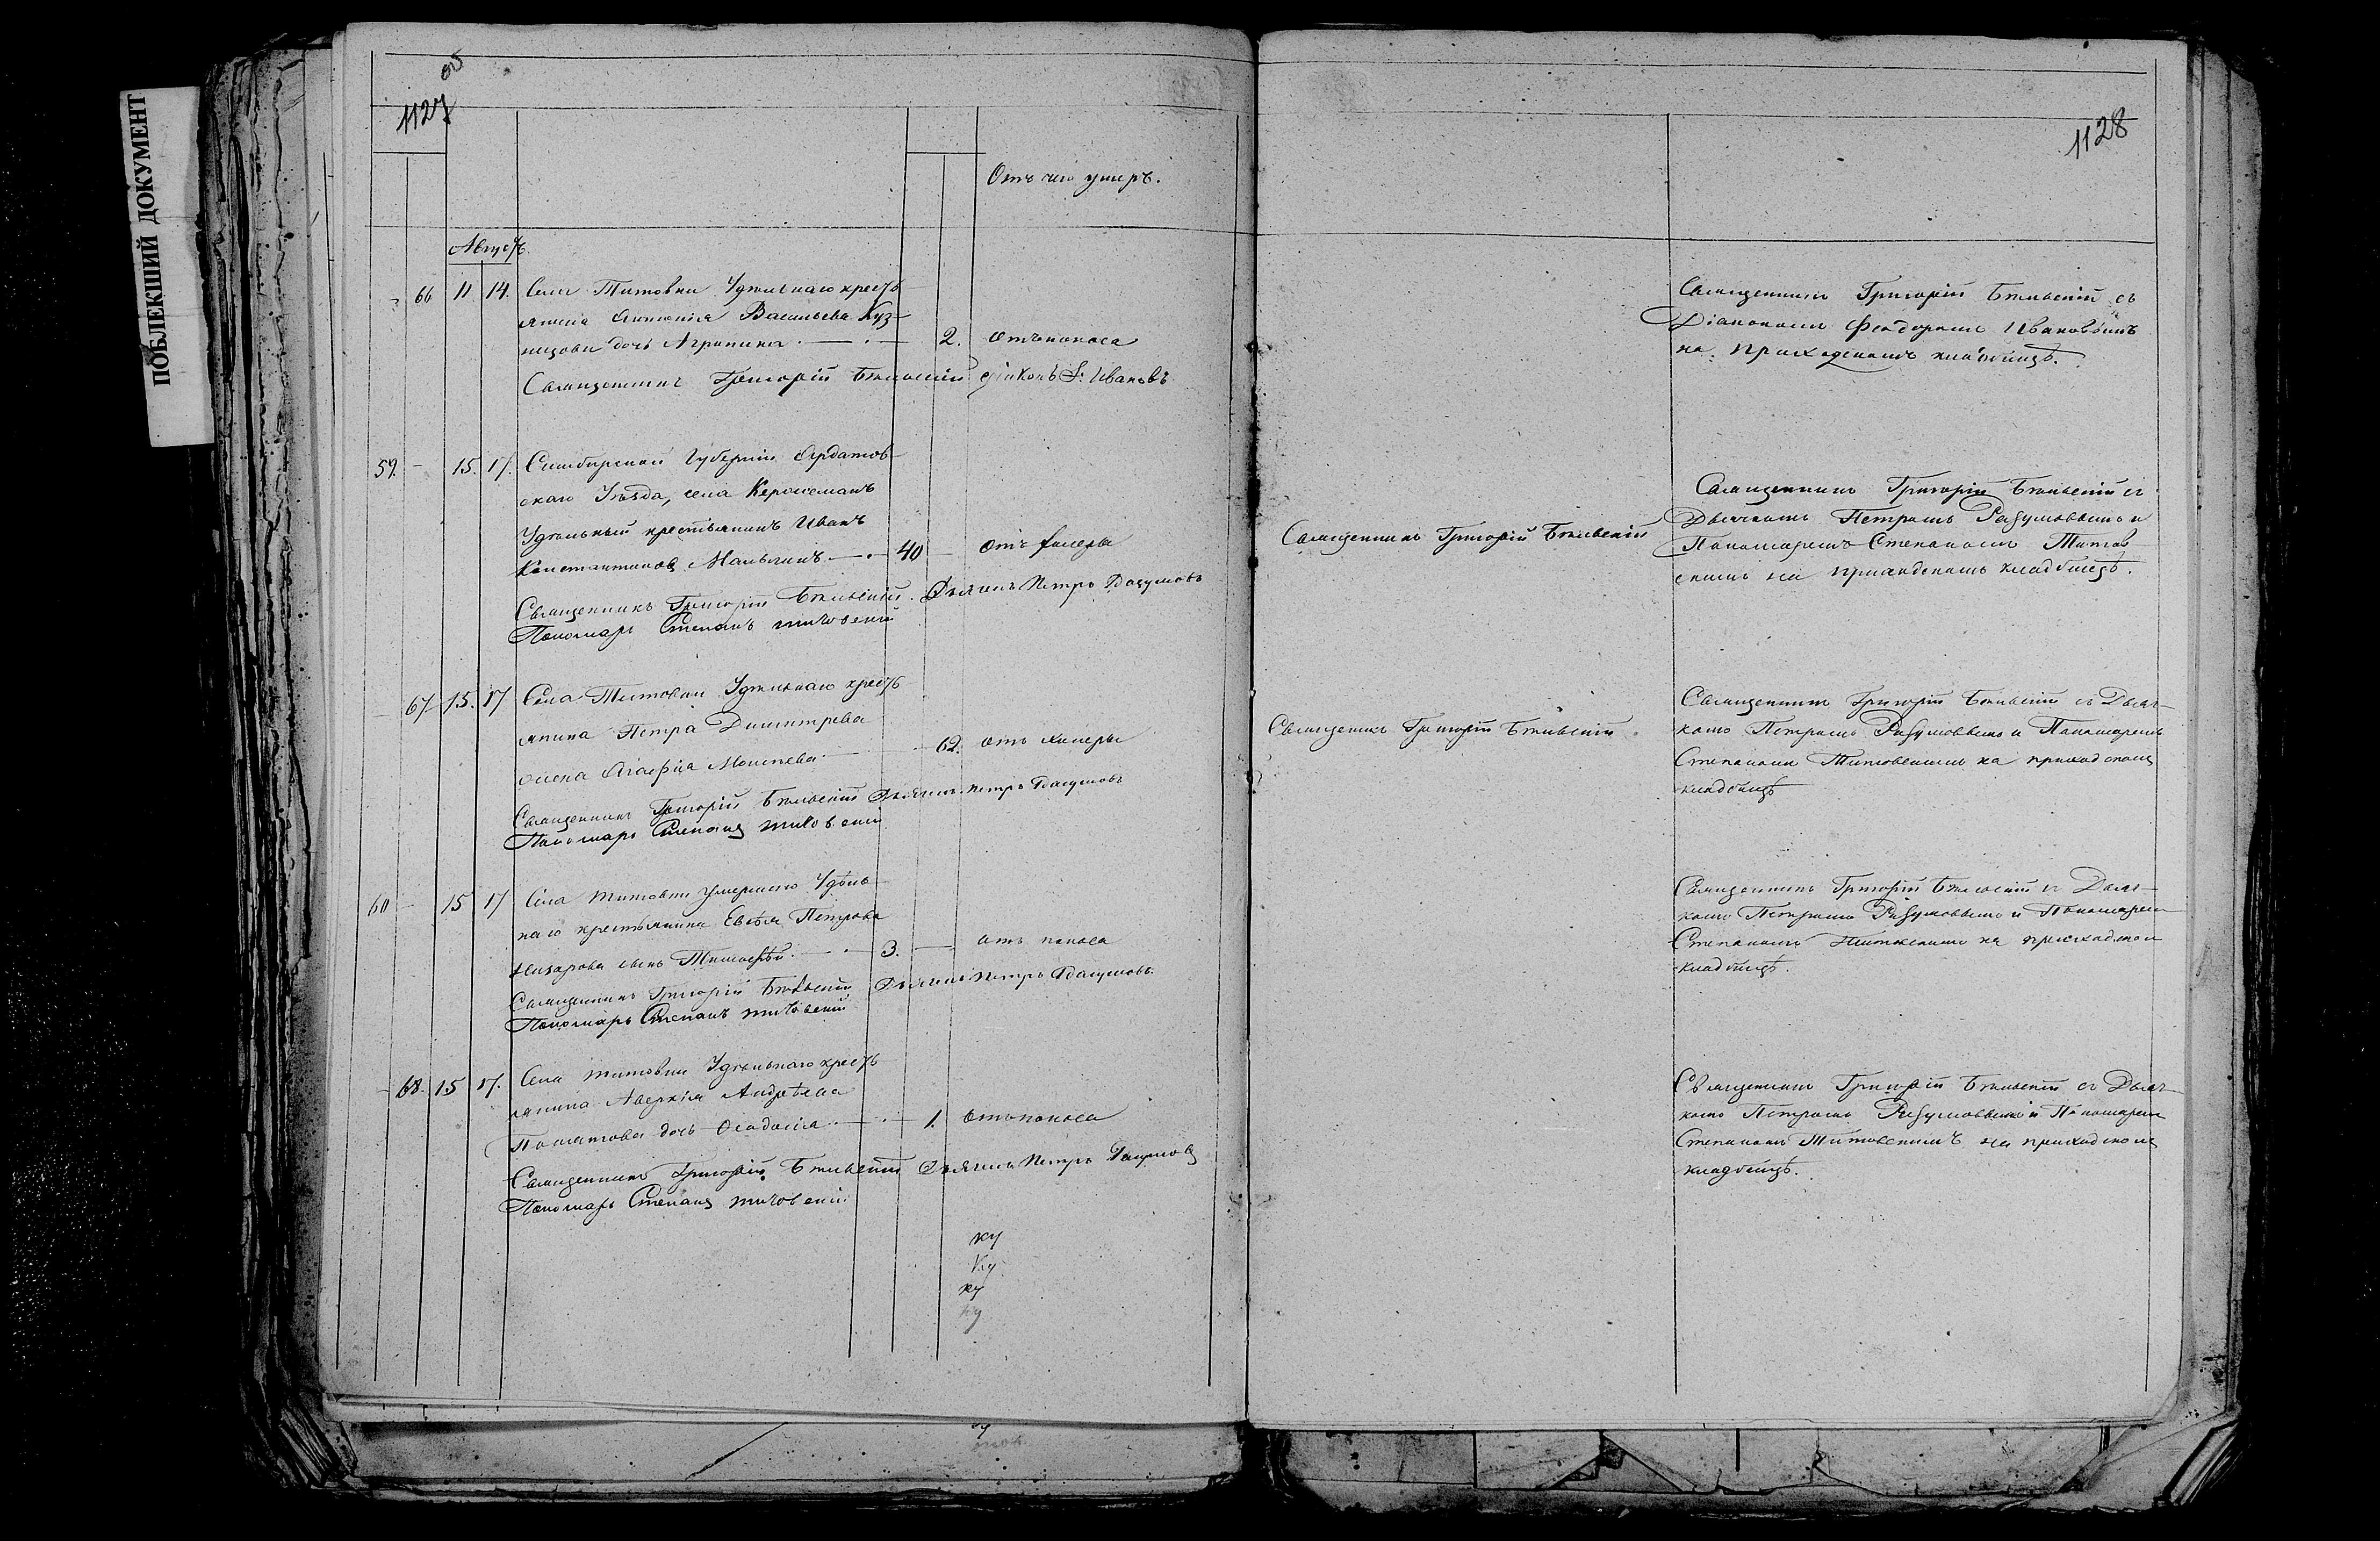 ПОБЛЕКШИЙ ДОКУМЕНТ
1127
Отъ чего умеръ.
Августъ
66 11 14. Села Титовки Удѣльнаго кресть
янина Антонія Васильева Куз
нецова дочь Агрипина 2. отъ поноса
Священникъ Григорій Бѣльскій діаконъ Ѳ: Ивановъ
59. 15. 17. Симбирской Губерніи Ардатов
скаго Уѣзда, села
Удѣльный крестьянинъ Иванъ
Константиновъ Малыгинъ 40 отъ холеры
Священникъ Григорій Бѣльскій. Дьячекъ Петръ Разумовъ
Пономарь Степанъ Титовскій
67 15. 17 Села Титовки Удѣльнаго кресть
янина Петра Димитрева
жена Агафія Моисеева 62. отъ холеры
Священникъ Григорій Бѣльскій Дьячекъ Петръ Разумовъ
Пономарь Степанъ Титовскій
60 15 17 Села Титовки умершаго Удѣль
наго крестьянина Евсѣя Петрова
сынъ Тимофѣй 3. отъ поноса
Священникъ Григорій Бѣльскій Дьячекъ Петръ Разумовъ
Пономарь Степанъ Титовскій
68. 15 17. Села Титовки Удѣльнаго кресть
янина Аверкія Андрѣева
дочь Ѳеодосія 1. отъ поноса
Священникъ Григорій Бѣльскій Дьячекъ Петръ Разумовъ
Пономарь Степанъ Титовскій
ку
ку
ку
ку
1128
Священникъ Григорій Бѣльскій съ
Діакономъ Феодоромъ Ивановымъ
на приходскомъ кладбищѣ.
Священникъ Григорій Бѣльскій
Священникъ Григорій Бѣльскій съ
Дьячкомъ Петромъ Разумовымъ и
Пономаремъ Степаномъ Титов
скимъ на приходскомъ кладбищѣ.
Священникъ Григорій Бѣльскій
Священникъ Григорій Бѣльскій съ Дьяч-
комъ Петромъ Разумовымъ и Пономаремъ
Степаномъ Титовскимъ на приходскомъ
кладбищѣ
Священникъ Григорій Бѣльскій съ Дьяч-
комъ Петромъ Разумовымъ и Пономаремъ
Степаномъ Титовскимъ на приходскомъ
кладбищѣ.
Священникъ Григорій Бѣльскій съ Дьяч-
комъ Петромъ Разумовымъ и Пономаремъ
Степаномъ Титовскимъ на приходскомъ
кладбищѣ.